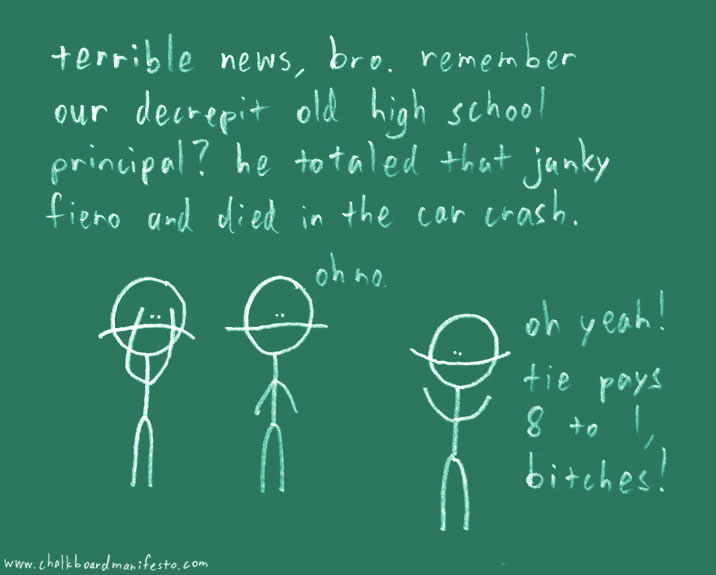 terrible news, bro. remember
our decrepit old high school
principal? he totaled that janky
fiero and died in the car crash.
oh no.
oh yeah!
tie pays
8 to 1,
bitches!
www.chalkboardmanifesto.com